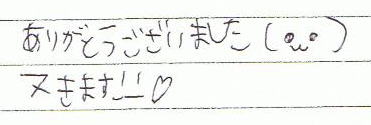 ありがとうございました(•ω•)
又きます!!♡